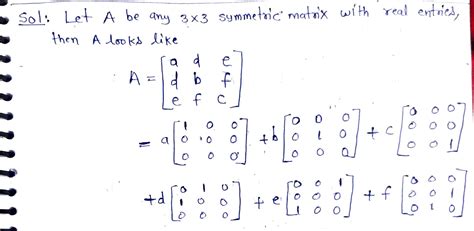 Sol: Let A be any 3x3 symmetric matrix with real entries,
then A looks like
A = [a d e
d b f
e f c]
= a [1 0 0
0 0 0
0 0 0] + b [0 0 0
0 1 0
0 0 0] + c [0 0 0
0 0 0
0 0 1]
+d [0 1 0
1 0 0
0 0 0] + e [0 0 1
0 0 0
1 0 0] + f [0 0 0
0 0 1
0 1 0]